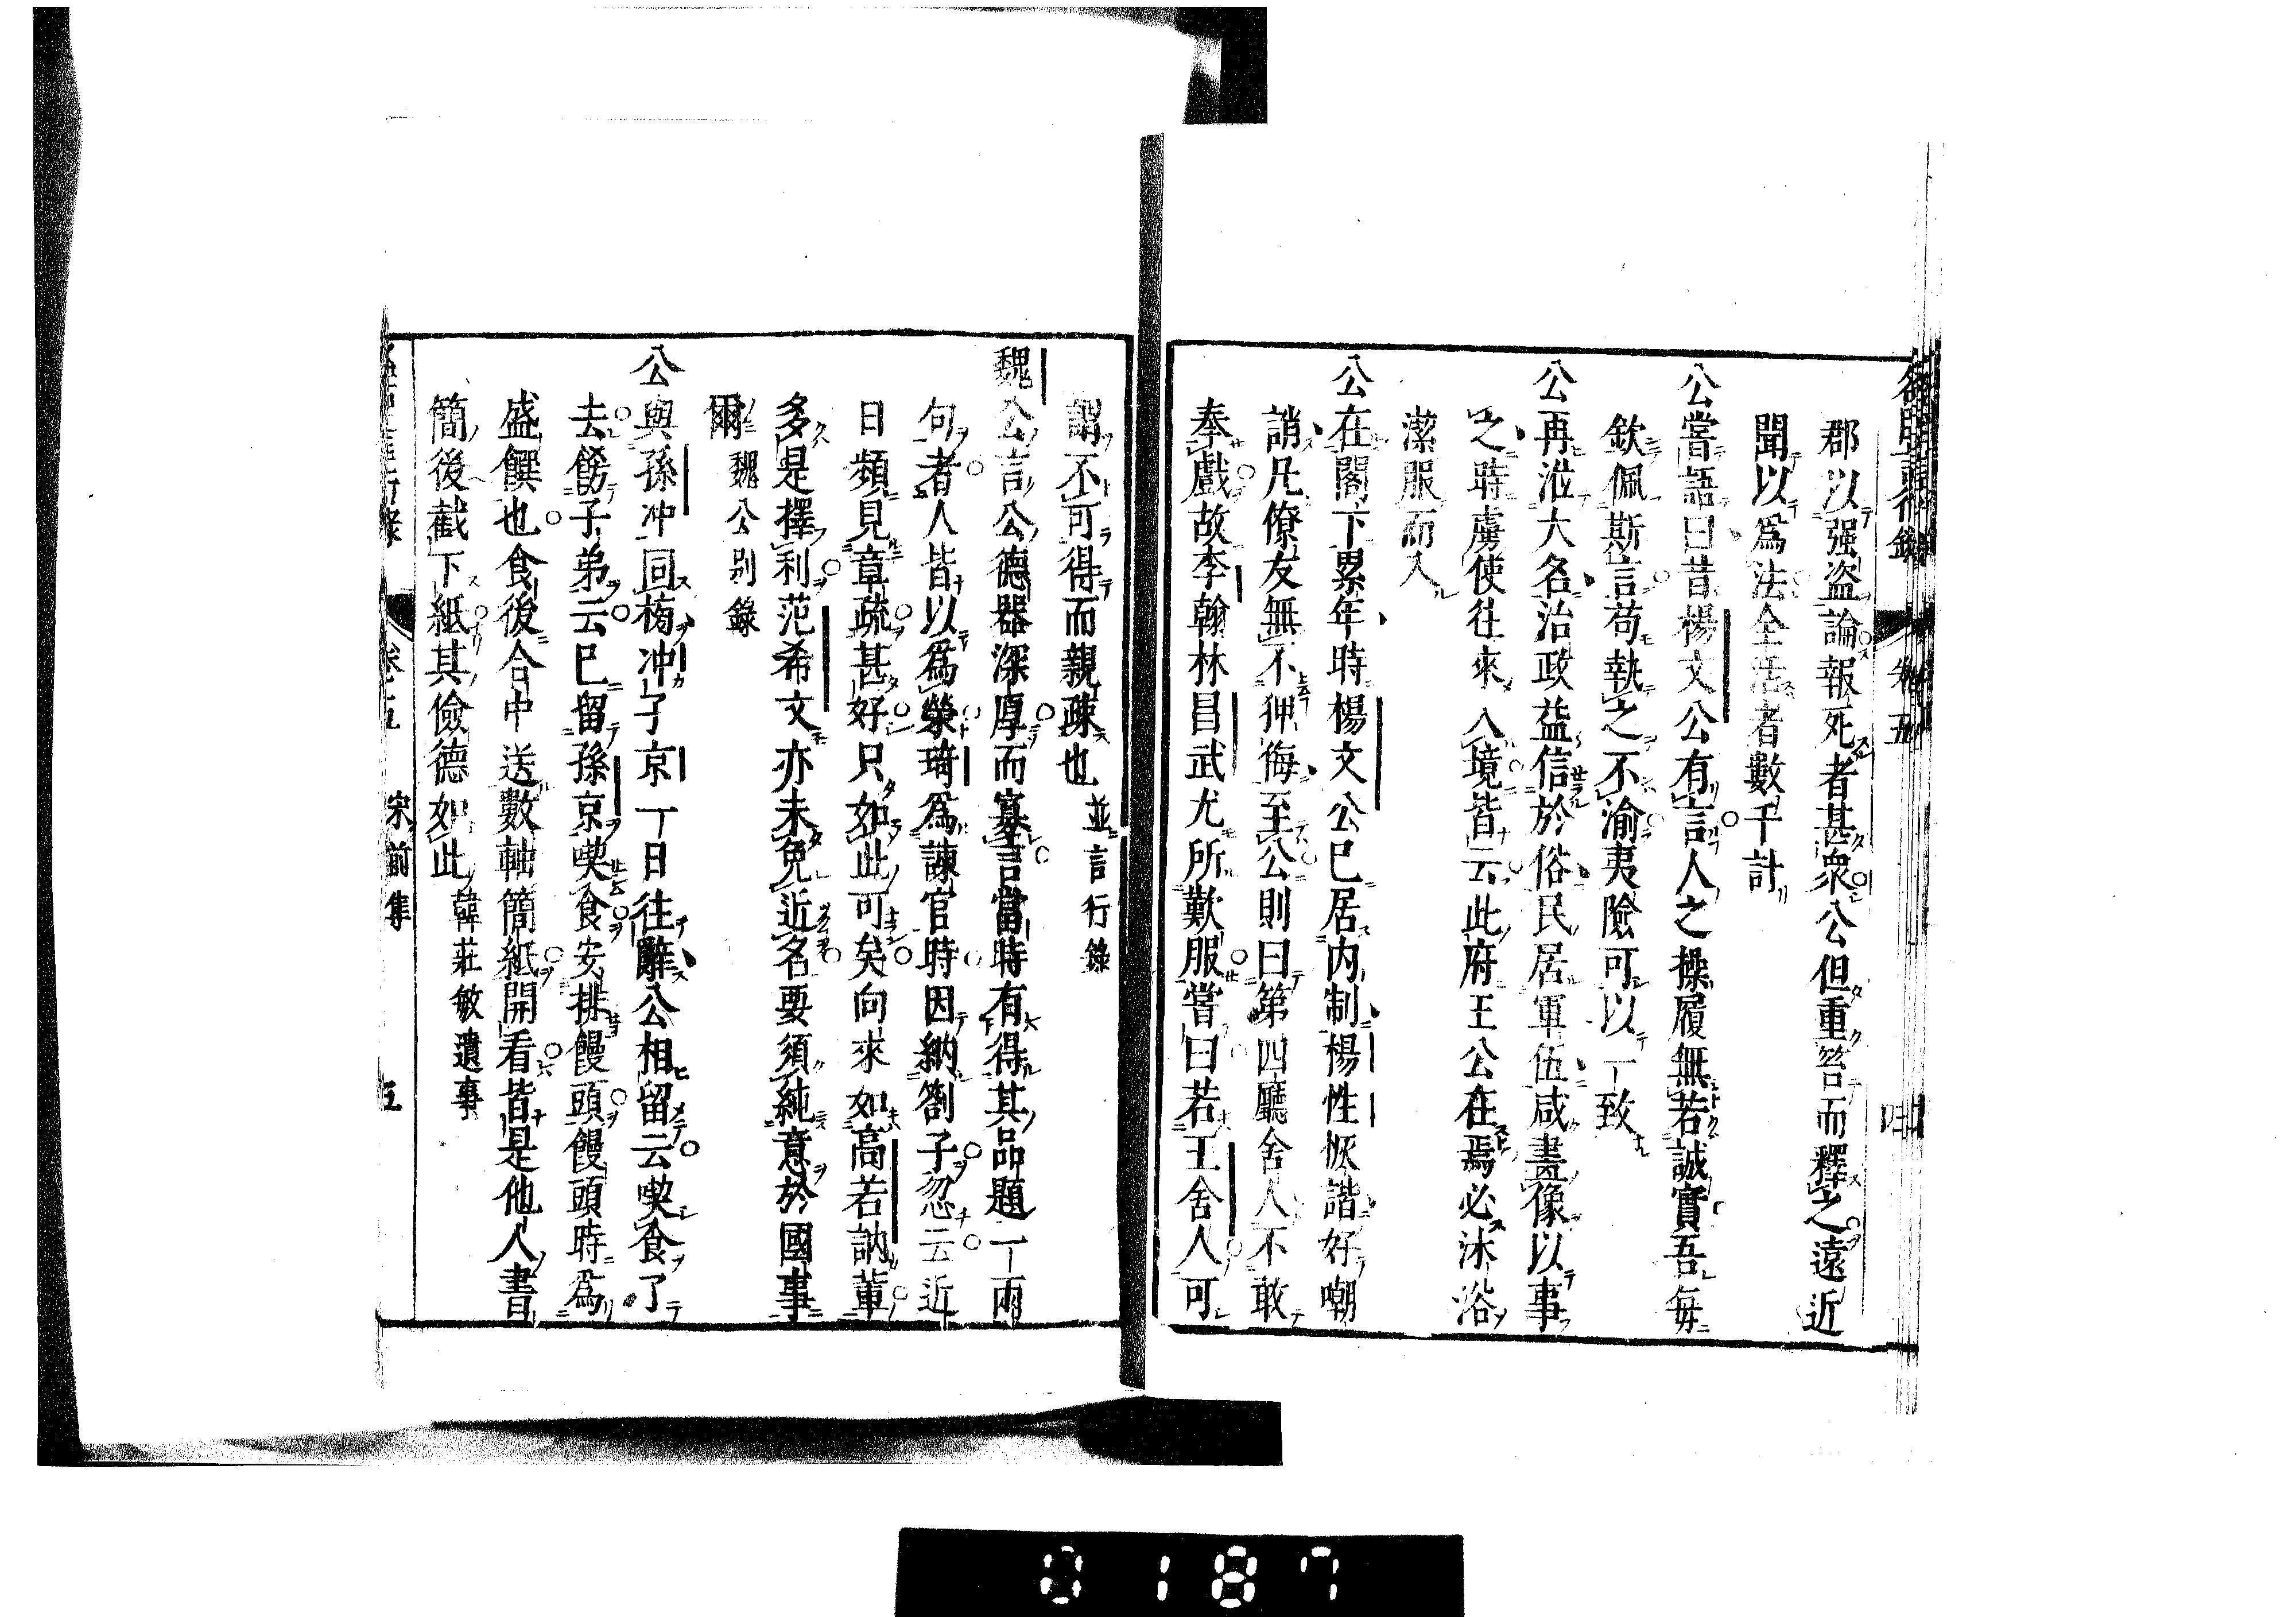 郡以强盗論報死者甚衆公但重笞而釋之遠近
聞以爲法全活者數千計
公嘗語曰昔楊文公有言人之操履無若誠實吾毎
欽佩斯言苟執之不渝夷險可以一致
公再涖大名治政益信於俗民居軍伍咸畫像以事
之時虜使往來入境皆云此府王公在焉必沐浴
潔服而入
公在閣下累年時楊文公已居内制楊性恢諧好嘲
誚凡僚友無不狎侮至公則曰第四廳舍人不敢
奉戲故李翰林昌武尤所歎服嘗曰若王舍人可
謂不可得而親疎也 並言行錄
魏公言公德器深厚而寡言當時有得其品題一兩
句者人皆以爲榮琦爲諫官時因納劄子忽云近
日頻見章疏甚好只如此可矣向來如高若訥輩
多是擇利范希文亦未免近名要須純意於國事
爾 魏公别錄
公與孫冲同榜冲子京一日往辭公相留云喫食了
去飭子弟云已留孫京喫食安排饅頭饅頭時爲
盛饌也食後合中送數軸簡紙開看皆是他人書
簡後截下紙其儉德如此 韓莊敏遺事
卷五 宋前集 五
0187